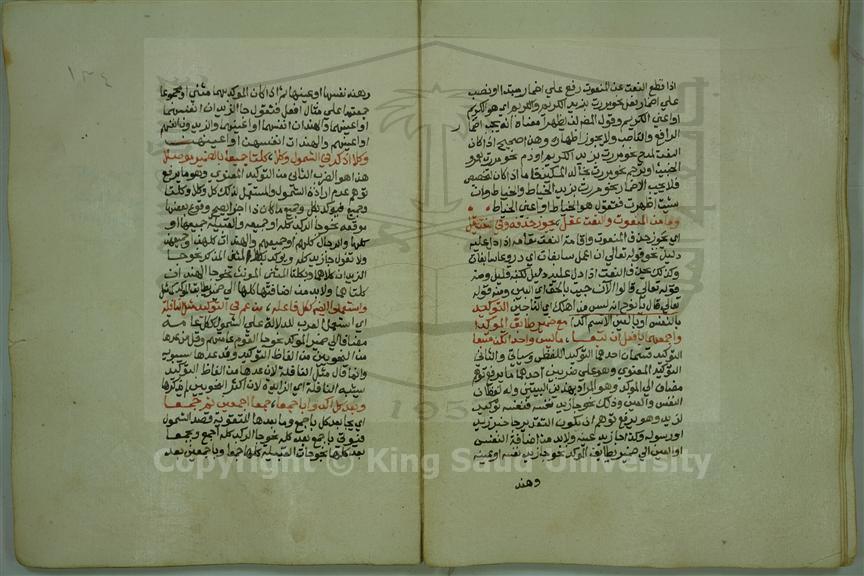 اذا قطع النعت عن المنعوت رفع على اضمار مبتدا او نصب
على اضمار فعل نحو مررت بزيد الكريم والكريم اي هو الكريم
او اعني الكريم وقول المصنف لن يظهرا معناه انه يجب اضمار
الرافع والناصب ولا يجوز اظهاره وهذا صحيح اذا كان
النعت لمدح نحو مررت بزيد الكريم او ذم نحو مررت بعمرو
الخبيث او ترحم نحو مررت بخالد المسكين فاما اذا كان لتخصيص
فلا يجب الاضمار نحو مررت بزيد الخياط والخياط وان
شئت اظهرت فتقول هو الخياط او اعني الخياط
وما من المنعوت والنعت عقل يجوز حذفه وفي النعت يقل
اي يجوز حذف المنعوت واقامة النعت مقامه اذا دل عليه
دليل نحو قوله تعالى ان اعمل سابغات اي دروعا سابغات
وكذلك يحذف النعت اذا دل عليه دليل لكنه قليل ومنه
قوله تعالى قالوا الان جئت بالحق اي البين ومنه قوله
تعالى قال يا نوح انه ليس من اهلك اي الناجين التوكيد
بالنفس او بالعين الاسم اكدا مع ضمير طابق الموكدا
واجمعهما بافعل ان تبعا ما ليس واحدا تكن متبعا
التوكيد قسمان احدهما التوكيد اللفظي وسياتي والثاني
التوكيد المعنوي وهو على ضربين احدهما ما يرفع توهم
مضاف الى الموكد وهو المراد بهذين البيتين وله لفظان
النفس والعين وذلك نحو جا زيد نفسه فنفسه توكيد
لزيد وهو يرفع توهم ان يكون التقدير جا خبر زيد
او رسوله وكذا جا زيد عينه ولا بد من اضافة النفس
او العين الى ضمير يطابق الموكد نحو جا زيد نفسه او عينه
وهند
١٣٤
وهند نفسها او عينها ثم اذا كان الموكد بهما مثنى او مجموعا
جمعتهما على مثال افعل فتقول جا الزيدان انفسهما
او اعينهما والهندان انفسهما او اعينهما والزيدون انفسهم
او اعينهم والهندات انفسهن او اعينهن
وكلا اذكر في الشمول وكلا كلتا جميعا بالضمير موصلا
هذا هو الضرب الثاني من التوكيد المعنوي وهو ما يرفع
توهم عدم ارادة الشمول والمستعمل لذلك كل وكلا وكلتا
وجميع فيوكد بكل وجميع ما كان ذا اجزا يصح وقوع بعضها
موقعه نحو جا الركب كله او جميعه والقبيلة جميعها او
كلها والرجال كلهم او جميعهم والهندات كلهن او جميعهن
ولا تقول جا زيد كله ويوكد بكلا المثنى المذكر نحو جا
الزيدان كلاهما وبكلتا المثنى المونث نحو جا الهندان
كلتاهما ولا بد من اضافتها كلها الى ضمير يطابق الموكد
واستعملوا ايضا ككل فاعله من عم في التوكيد مثل النافله
اي استعمل العرب للدلالة على الشمول ككل عامة
مضافا الى ضمير الموكد نحو جا القوم عامتهم وقل من عدها
من النحويين من الفاظ التوكيد وقد عدها سيبويه
وانما قال مثل النافلة لان عدها من الفاظ التوكيد
يشبه النافلة اي الزيادة لان اكثر النحويين لم يذكرها
وبعد كل اكدوا باجمعا جمعا اجمعين ثم جمعا
اي يجا بعد كل باجمع وما بعدها لتقوية قصد الشمول
فيوتى باجمع بعد كله نحو جا الركب كله اجمع وبجمعا
بعد كلها نحو جات القبيلة كلها جمعا وباجمعين بعد
Copyright © King Saud University